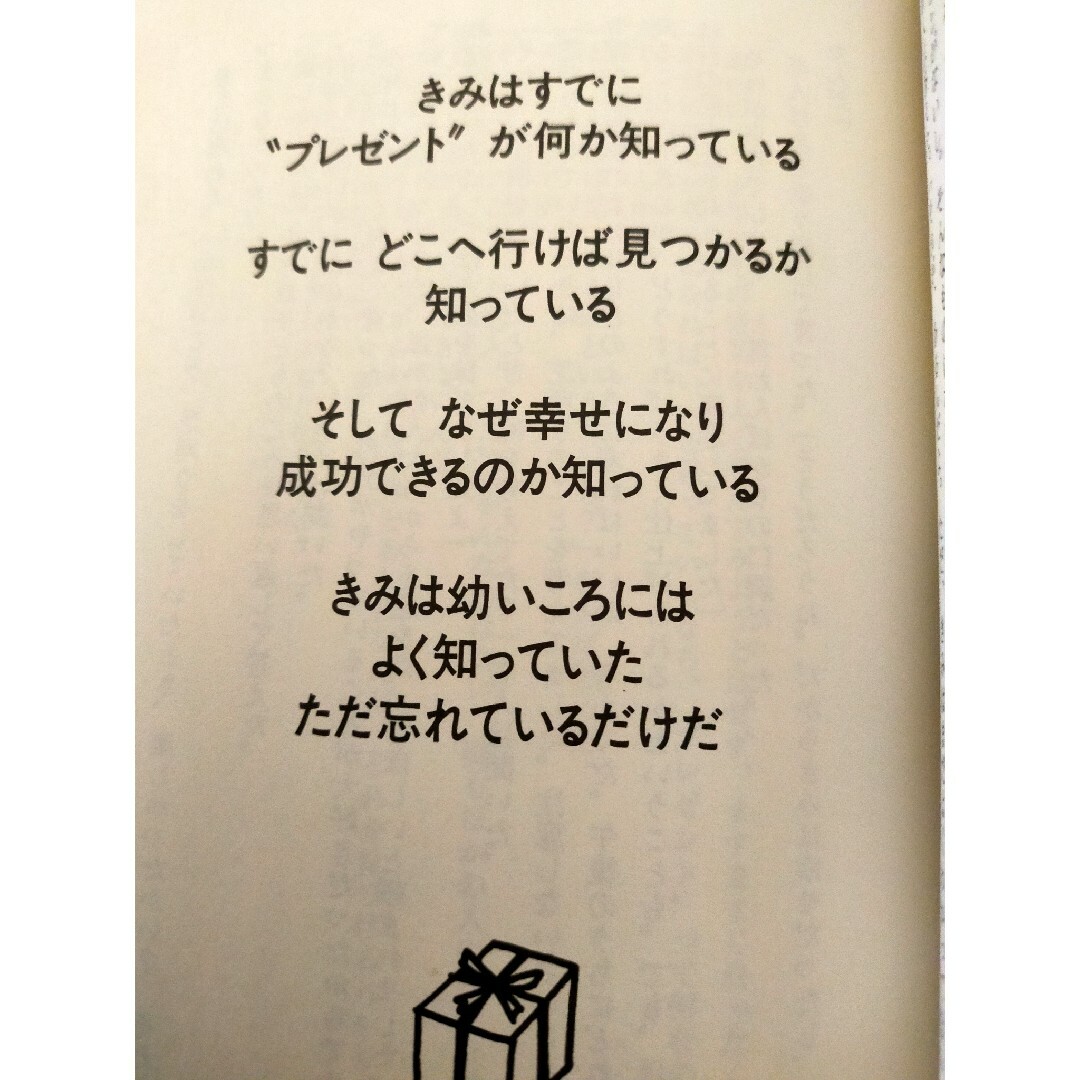 きみはすでに
〝プレゼント〟が何か知っている
すでに どこへ行けば見つかるか
知っている
そして なぜ幸せになり
成功できるのか知っている
きみは幼いころには
よく知っていた
ただ忘れているだけだ